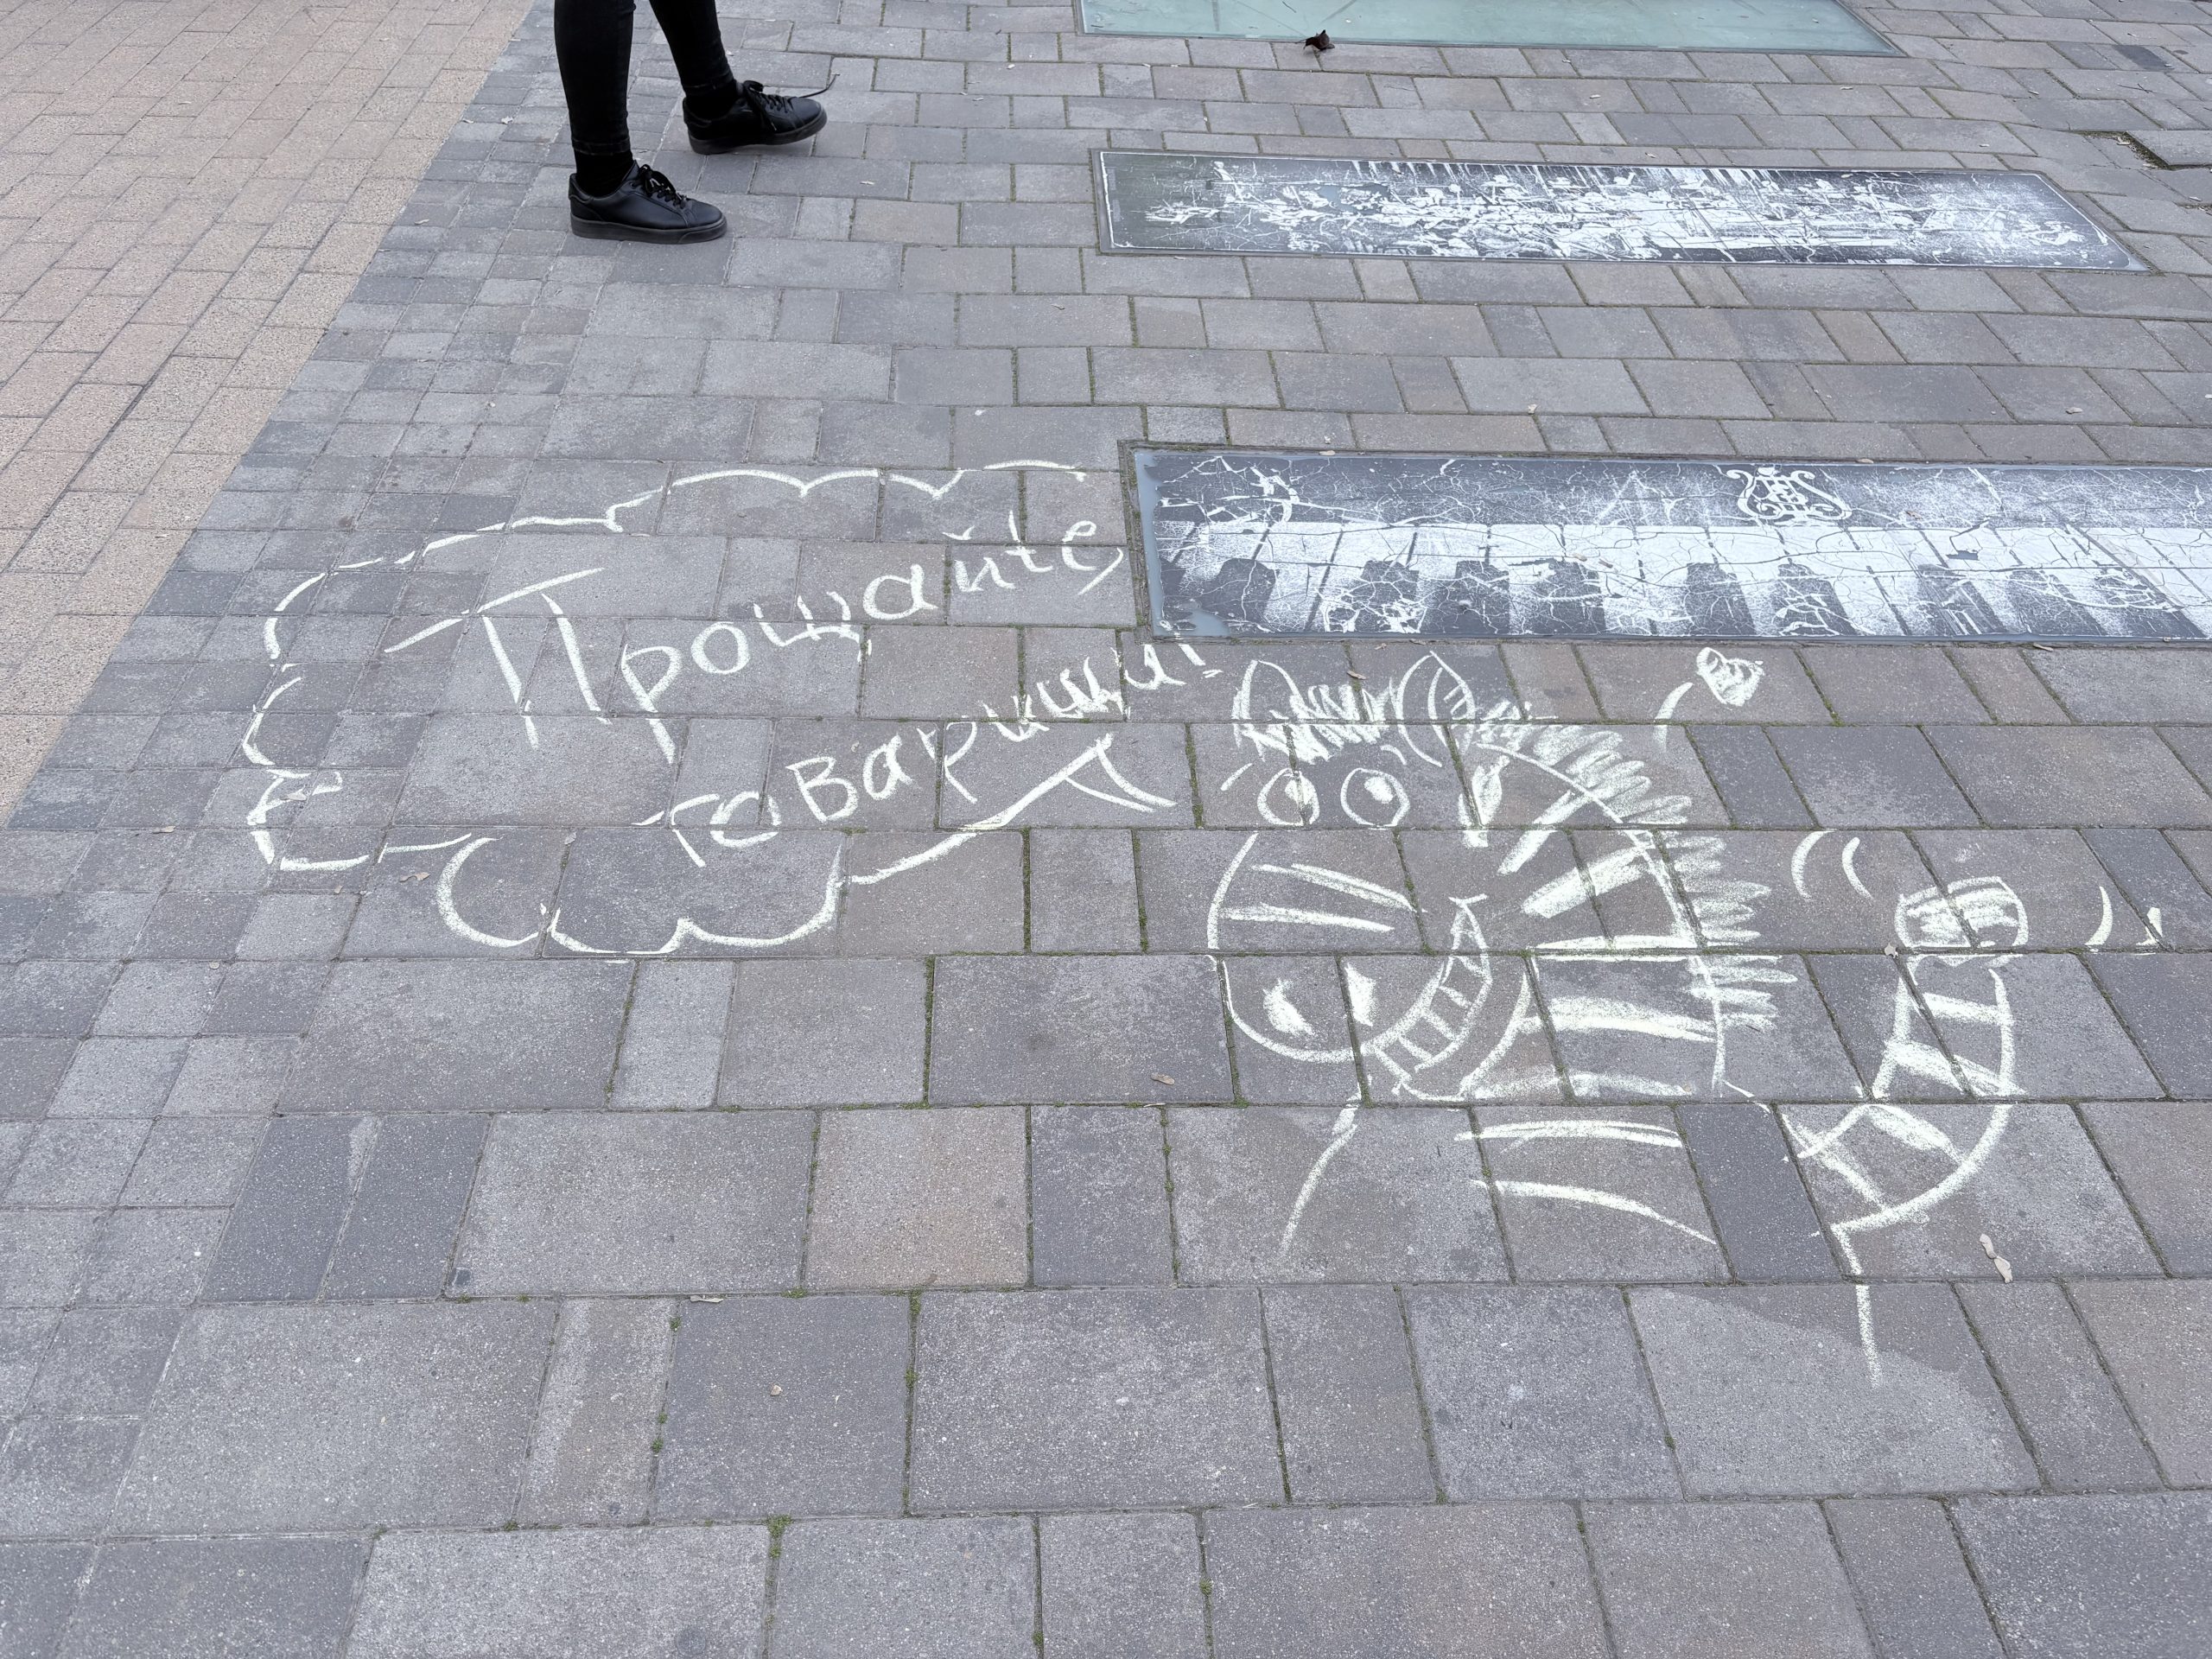 Прощайте
товарищи!